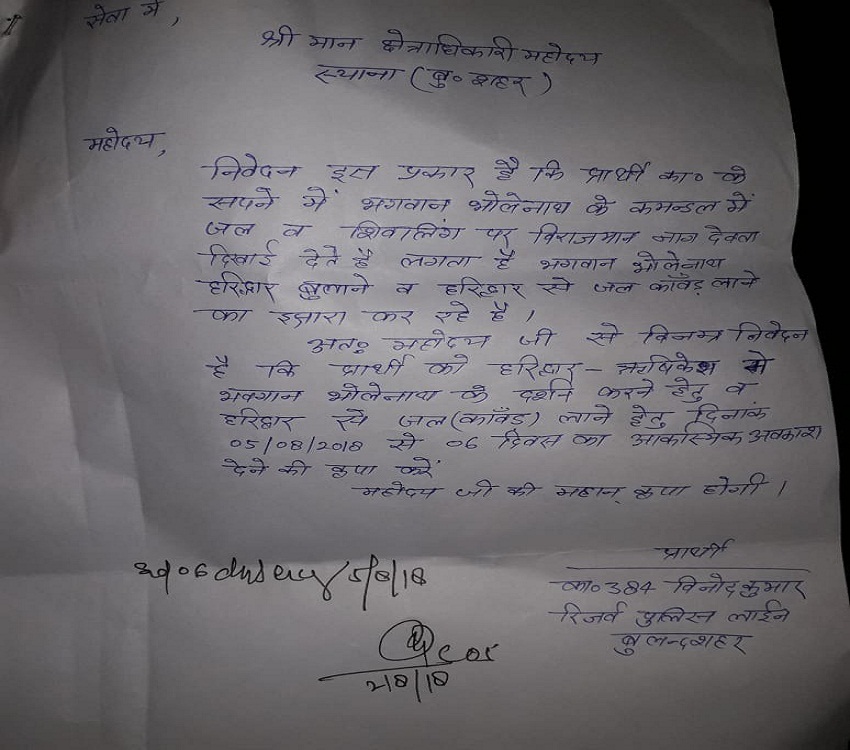 सेवा में,
श्री मान क्षेत्राधिकारी महोदय
स्याना (बु० शहर)
महोदय,
निवेदन इस प्रकार है कि प्रार्थी का० के
सपने में भगवान भोलेनाथ के कमन्डल में
जल व शिवालिंग पर विराजमान नाग देवता
दिखाई देते है लगता है भगवान भोलेनाथ
हरिद्वार बुलाने व हरिद्वार से जल काँवड़ लाने
का इशारा कर रहे है।
अतः महोदय जी से विनम्र निवेदन
है कि प्रार्थी को हरिद्वार - ऋषिकेश से
भगवान भोलेनाथ के दर्शन करने हेतु व
हरिद्वार से जल (काँवड़) लाने हेतु दिनांक
05/08/2018 से 06 दिवस का आकस्मिक अवकाश
देने की कृपा करें
महोदय जी की महान् कृपा होगी।
प्रार्थी
का० 384 विनोद कुमार
रिजर्व पुलिस लाईन
बुलन्दशहर
06 5/8/18
2/8/18